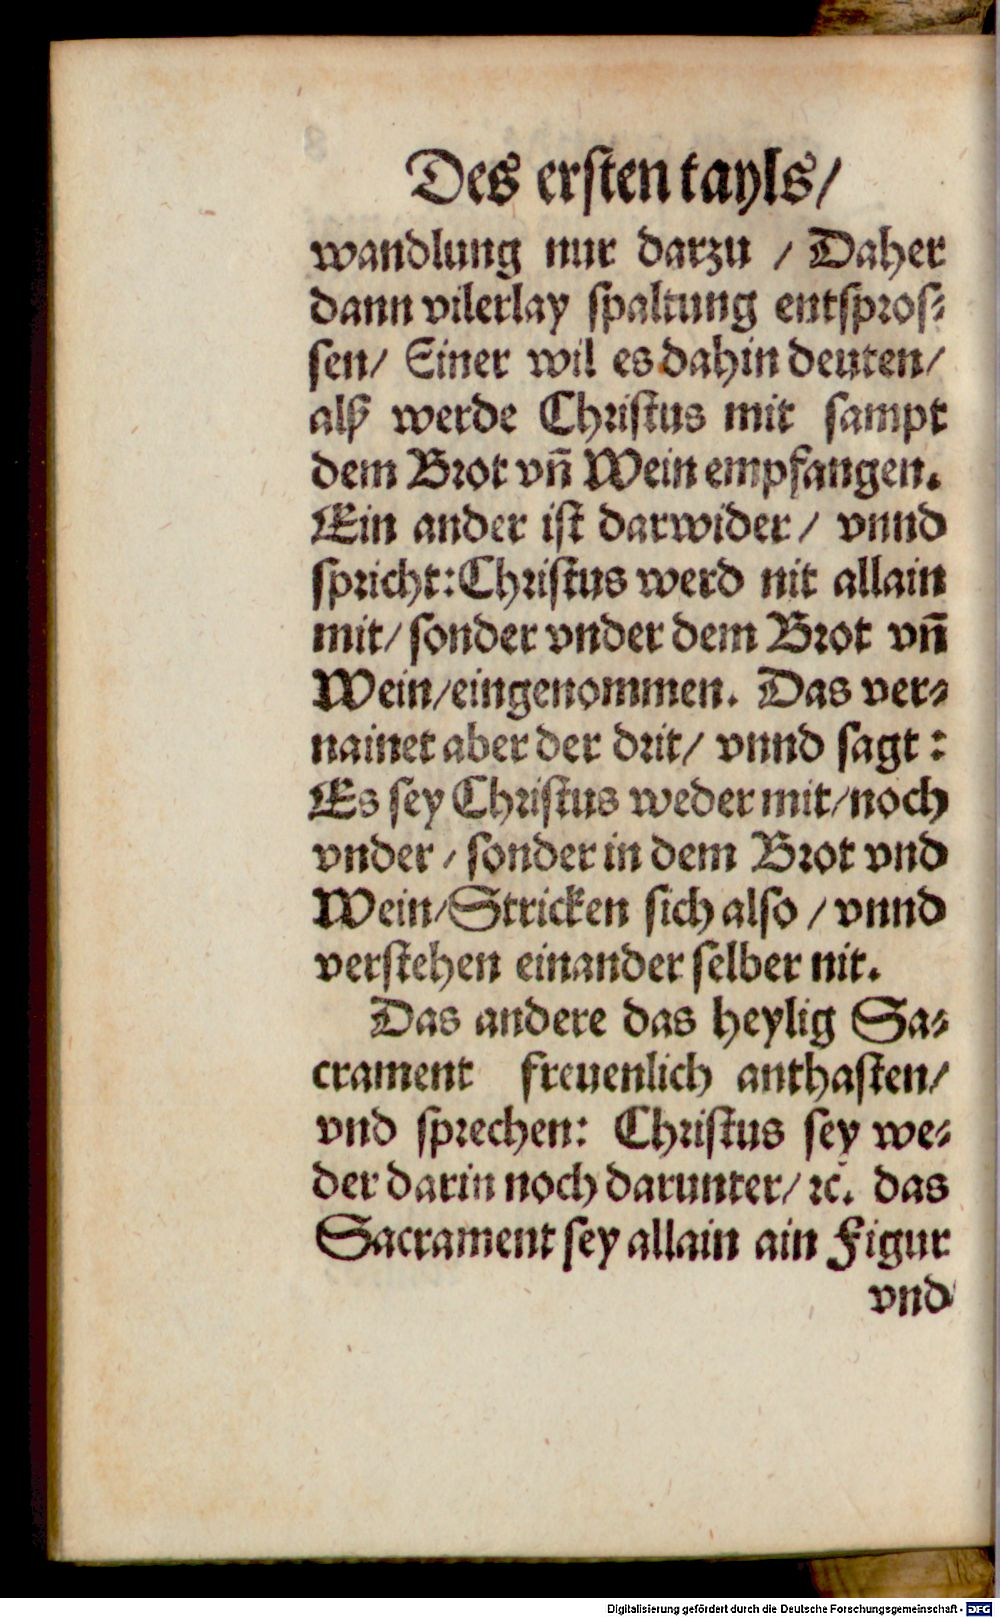 Des ersten tayls/
wandlung nur darzu / Daher
dann vilerlay spaltung entspros⸗
sen/ Einer wil es dahin deuten/
alß werde Christus mit sampt
dem Brot vñ Wein empfangen.
Ein ander ist darwider / vnnd
spricht: Christus werd nit allain
mit/ sonder vnder dem Brot vñ
Wein/eingenommen. Das ver⸗
nainet aber der drit/ vnnd sagt :
Es sey Christus weder mit/noch
vnder / sonder in dem Brot vnd
Wein/Stricken sich also / vnnd
verstehen einander selber nit.
Das andere das heylig Sa⸗
crament freuenlich anthasten/
vnd sprechen: Christus sey we⸗
der darin noch darunter/ ꝛc. das
Sacrament sey allain ain Figur
vnd
Digitalisierung gefördert durch die Deutsche Forschungsgemeinschaft - DFG